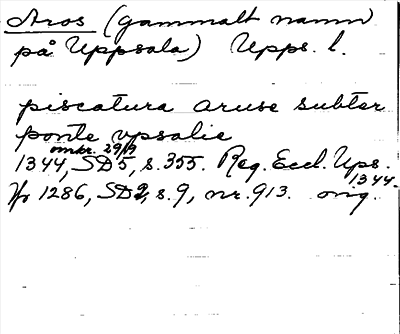 Aros (gammalt namn
på Uppsala) Upps. l.
piscatura aruse subter
ponte upsalie
omkr. 29/9
1344, SD5, s. 355. Reg. Eccl. Ups.
1344.
Jfr 1286, SD2, s. 9, nr. 913. orig.